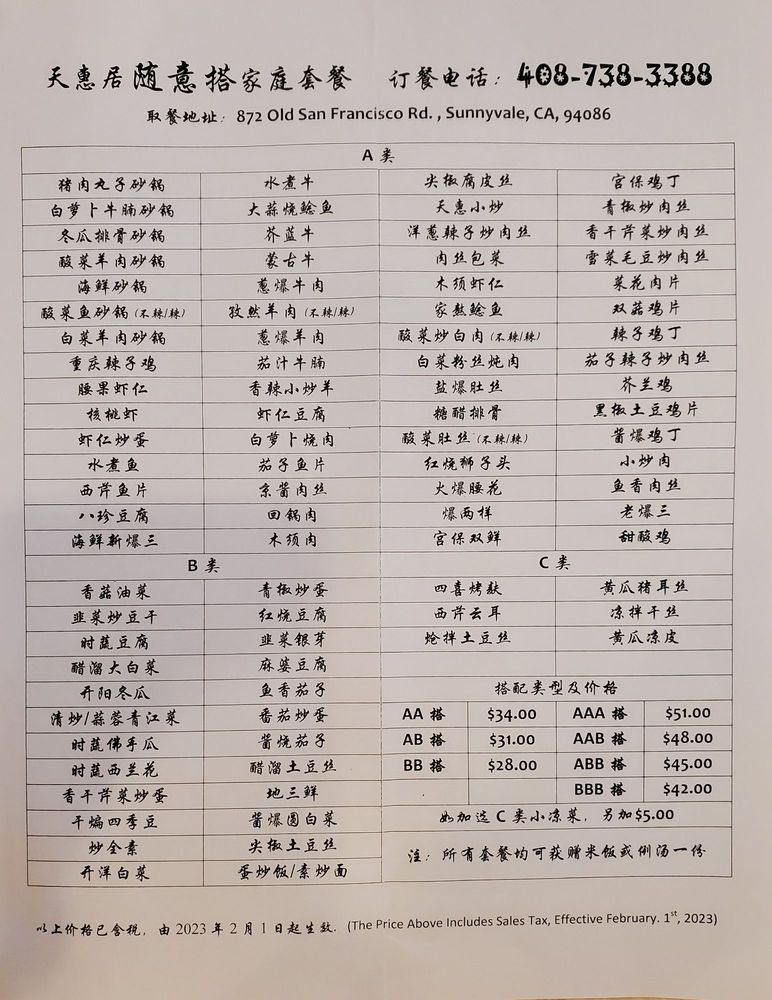 天惠居随意搭家庭套餐 订餐电话：408-738-3388
取餐地址：872 Old San Francisco Rd. , Sunnyvale, CA, 94086
A 类
猪肉丸子砂锅 水煮牛 尖椒腐皮丝 宫保鸡丁
白萝卜牛腩砂锅 大蒜烧鲶鱼 天惠小炒 青椒炒肉丝
冬瓜排骨砂锅 芥蓝牛 洋葱辣子炒肉丝 香干芹菜炒肉丝
酸菜羊肉砂锅 蒙古牛 肉丝包菜 雪菜毛豆炒肉丝
海鲜砂锅 葱爆牛肉 木须虾仁 菜花肉片
酸菜鱼砂锅（不辣/辣） 孜然羊肉（不辣/辣） 家熬鲶鱼 双菇鸡片
白菜羊肉砂锅 葱爆羊肉 酸菜炒白肉（不辣/辣） 辣子鸡丁
重庆辣子鸡 茄汁牛腩 白菜粉丝炖肉 茄子辣子炒肉丝
腰果虾仁 香辣小炒羊 盐爆肚丝 芥兰鸡
核桃虾 虾仁豆腐 糖醋排骨 黑椒土豆鸡片
虾仁炒蛋 白萝卜烧肉 酸菜肚丝（不辣/辣） 酱爆鸡丁
水煮鱼 茄子鱼片 红烧狮子头 小炒肉
西芹鱼片 京酱肉丝 火爆腰花 鱼香肉丝
八珍豆腐 回锅肉 爆两样 老爆三
海鲜新爆三 木须肉 宫保双鲜 甜酸鸡
B 类 C 类
香菇油菜 青椒炒蛋 四喜烤麸 黄瓜猪耳丝
韭菜炒豆干 红烧豆腐 西芹云耳 凉拌干丝
时蔬豆腐 韭菜银芽 炝拌土豆丝 黄瓜凉皮
醋溜大白菜 麻婆豆腐
开阳冬瓜 鱼香茄子 搭配类型及价格
清炒/蒜蓉青江菜 番茄炒蛋 AA 搭 $34.00 AAA 搭 $51.00
时蔬佛手瓜 酱烧茄子 AB 搭 $31.00 AAB 搭 $48.00
时蔬西兰花 醋溜土豆丝 BB 搭 $28.00 ABB 搭 $45.00
香干芹菜炒蛋 地三鲜 BBB 搭 $42.00
干煸四季豆 酱爆圆白菜 如加选 C 类小凉菜，另加$5.00
炒全素 尖椒土豆丝
开洋白菜 蛋炒饭/素炒面 注：所有套餐均可获赠米饭或例汤一份
以上价格已含税，由 2023 年 2 月 1 日起生效. (The Price Above Includes Sales Tax, Effective February. 1st, 2023)